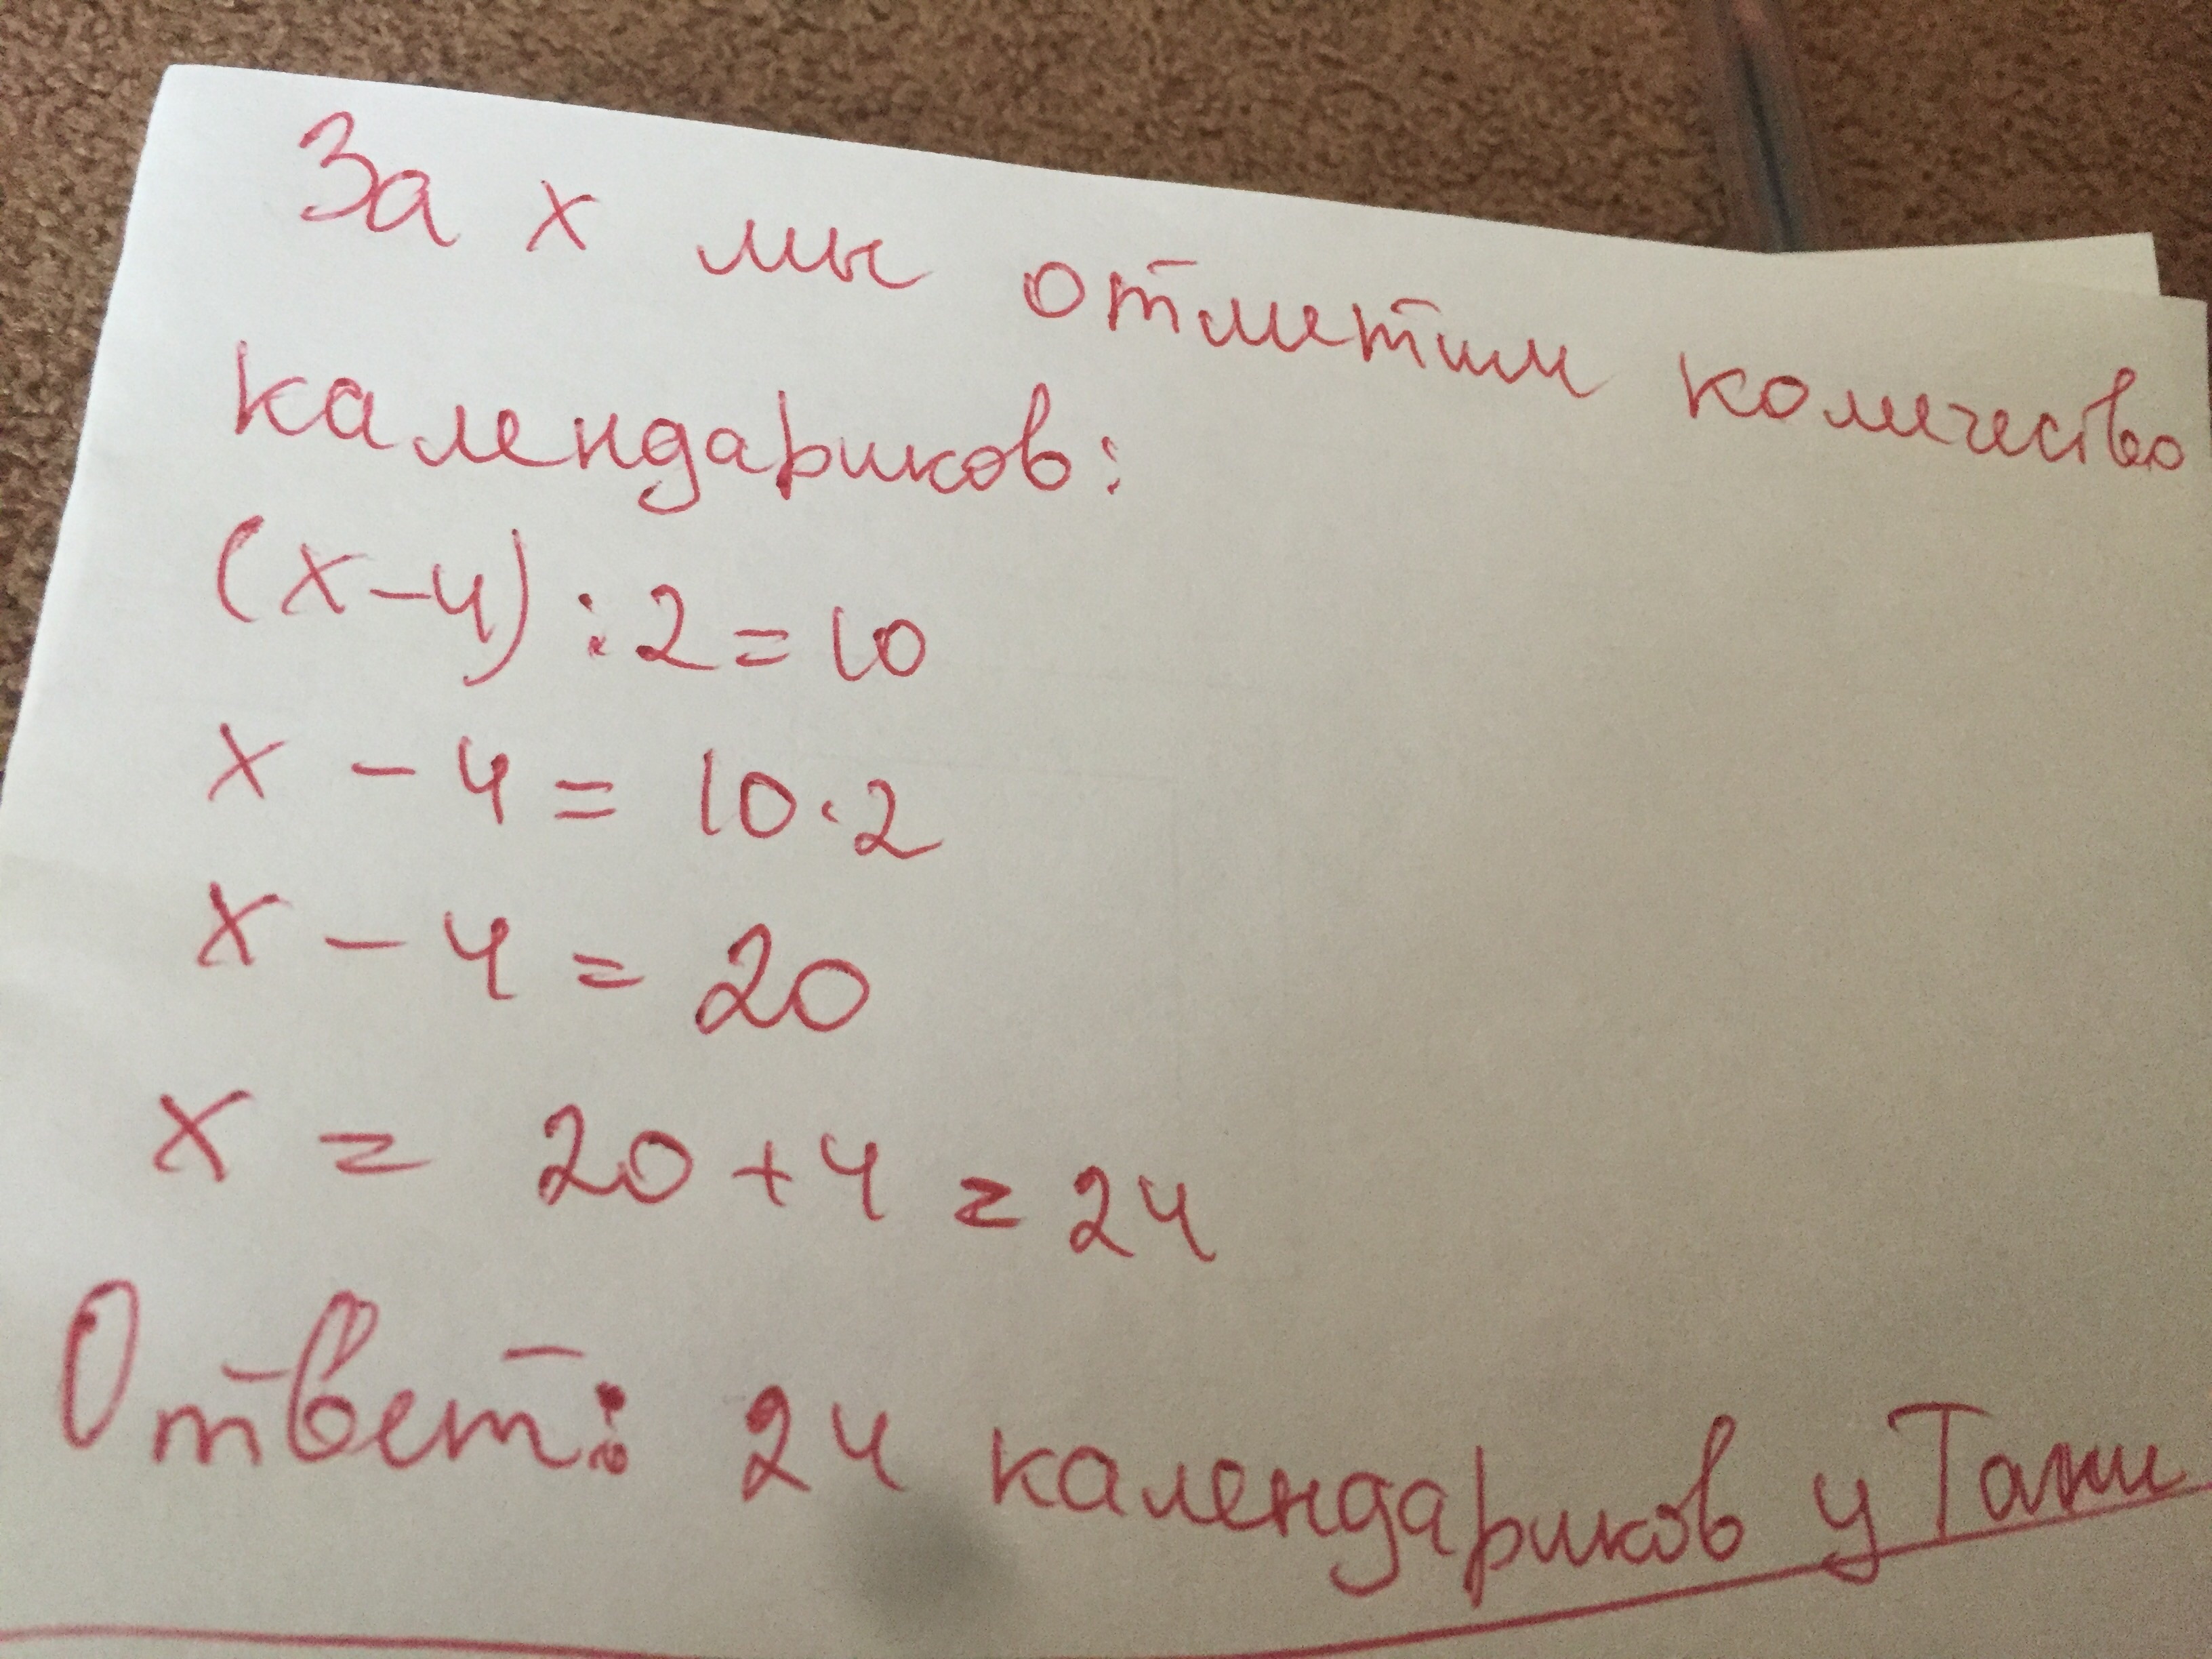 За х мы отметим количество
календариков:
(х-4):2=10
х - 4 = 10·2
х - 4 = 20
х = 20+4 = 24
Ответ: 24 календариков у Тани